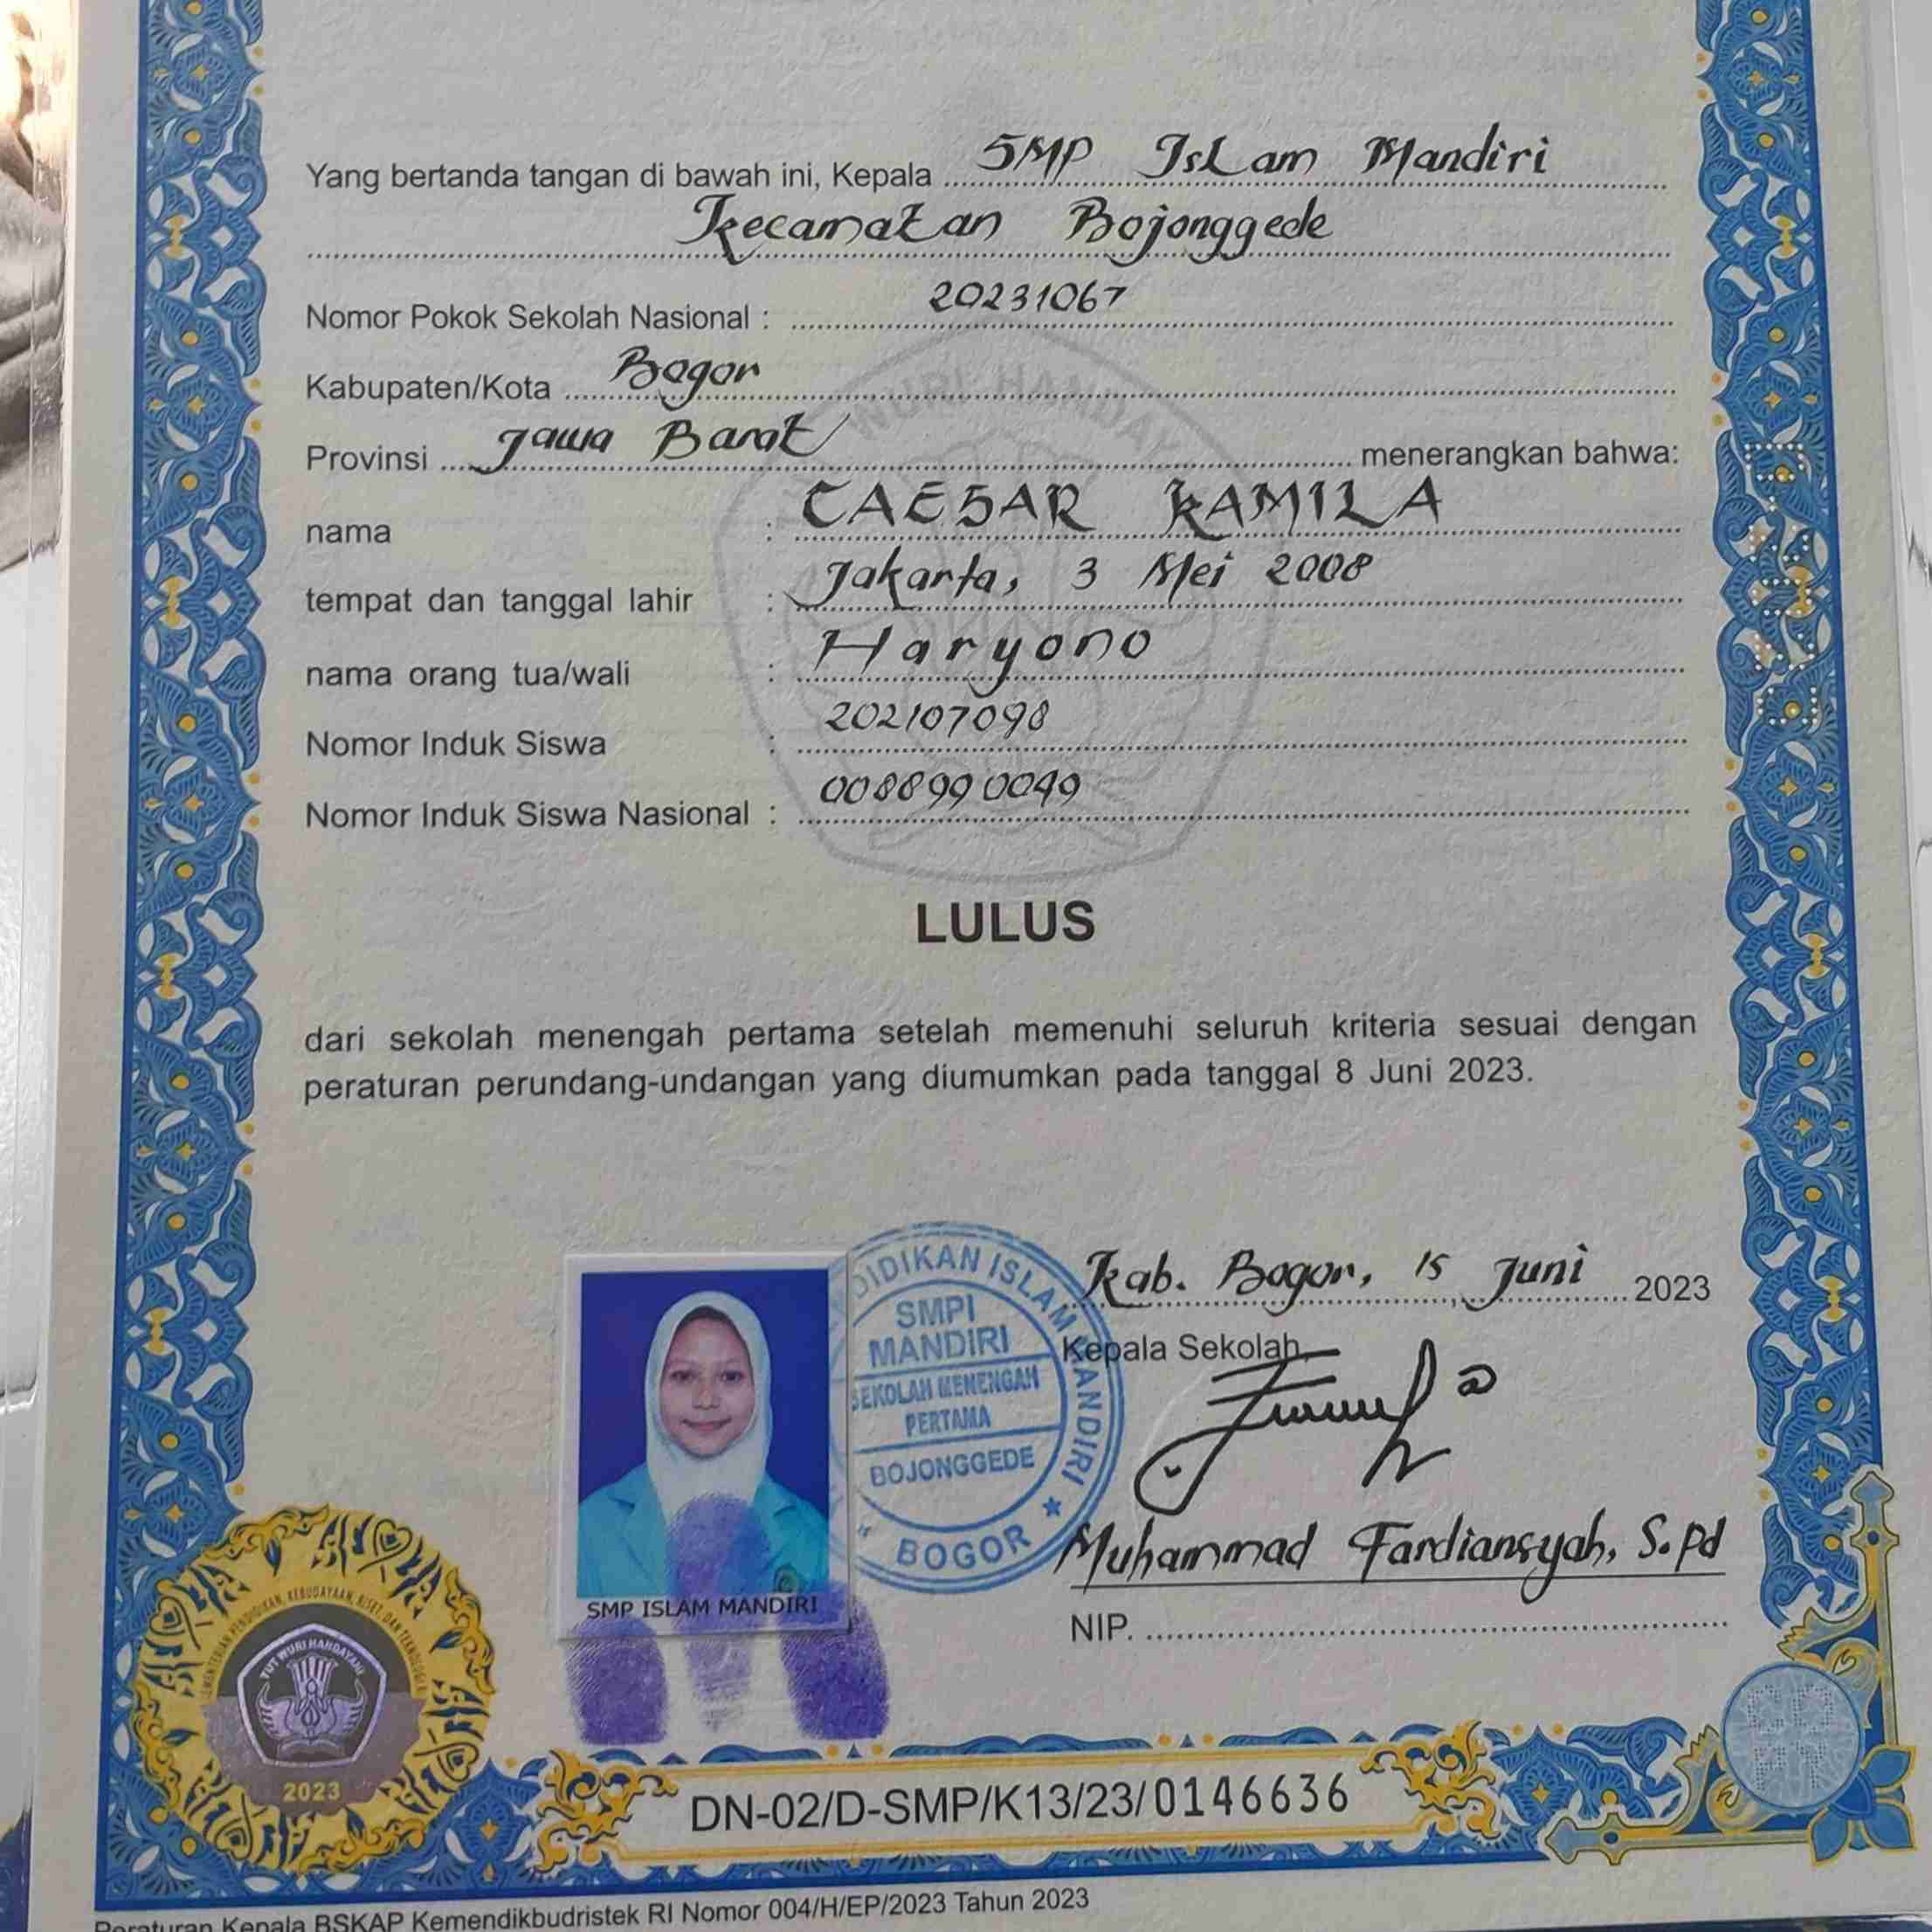 Yang bertanda tangan di bawah ini, Kepala SMP Islam Mandiri
Kecamatan Bojonggede
Nomor Pokok Sekolah Nasional : 20231067
Kabupaten/Kota Bogor
Provinsi Jawa Barat menerangkan bahwa:
nama : CAESAR KAMILA
tempat dan tanggal lahir : Jakarta, 3 Mei 2008
nama orang tua/wali : Haryono
Nomor Induk Siswa : 202107098
Nomor Induk Siswa Nasional : 0088990049
LULUS
dari sekolah menengah pertama setelah memenuhi seluruh kriteria sesuai dengan
peraturan perundang-undangan yang diumumkan pada tanggal 8 Juni 2023.
Kab. Bogor, 15 Juni 2023
Kepala Sekolah,
ISLAM MANDIRI
SMPI
MANDIRI
SEKOLAH MENENGAH
PERTAMA
BOJONGGEDE
BOGOR
Muhammad Fardiansyah, S.Pd
NIP.
SMP ISLAM MANDIRI
KEMENTERIAN PENDIDIKAN, KEBUDAYAAN, RISET, DAN TEKNOLOGI
TUT WURI HANDAYANI
2023
DN-02/D-SMP/K13/23/0146636
Peraturan Kepala BSKAP Kemendikbudristek RI Nomor 004/H/EP/2023 Tahun 2023